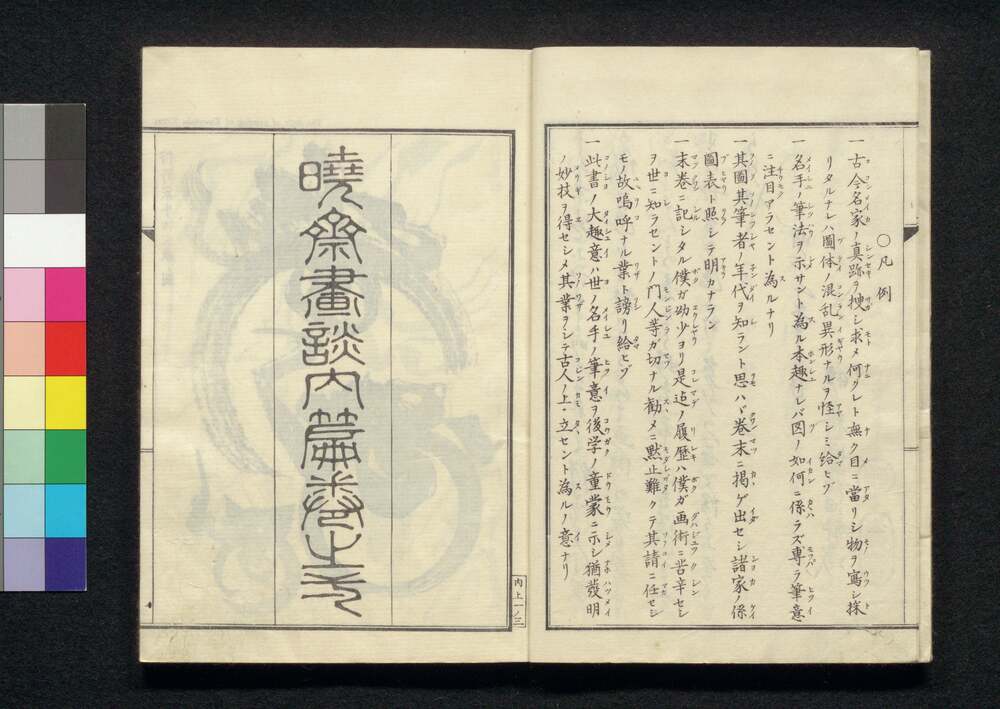 〇凡例
一 古今名家ノ真跡ヲ捜シ求メ何クレト無ク目ニ當リシ物ヲ寫シ採
リタルナレハ圖体ノ混乱異形ナルヲ怪シミ給ヒソ
一 名手ノ筆法ヲ示サント為ル本趣ナレバ図ノ如何ニ係ラズ専ラ筆意
ニ注目アラセント為ルナリ
一 其圖其筆者ノ年代ヲ知ラント思ハヾ巻末ニ掲ゲ出セシ諸家ノ係
圖表ト照シテ明カナラン
一 末巻ニ記シタル僕ガ幼少ヨリ是迠ノ履歴ハ僕ガ画術ニ苦辛セシ
ヲ世ニ知ラセントノ門人等ガ切ナル勧メニ黙止難クテ其請ニ任セシ
モノ故嗚呼ナル業ト謗リ給ヒソ
一 此書ノ大趣意ハ世ノ名手ノ筆意ヲ後学ノ童蒙ニ示シ猶發明
ノ妙技ヲ得セシメ其業ヲシテ古人ノ上ニ立セント為ルノ意ナリ
内上一ノ三
曉齋畫談内篇卷上